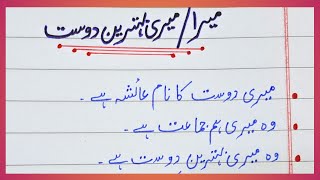 میرا/میری بہترین دوست
میری دوست کا نام عائشہ ہے۔
وہ میری ہم جماعت ہے۔
وہ میری بہترین دوست ہے۔